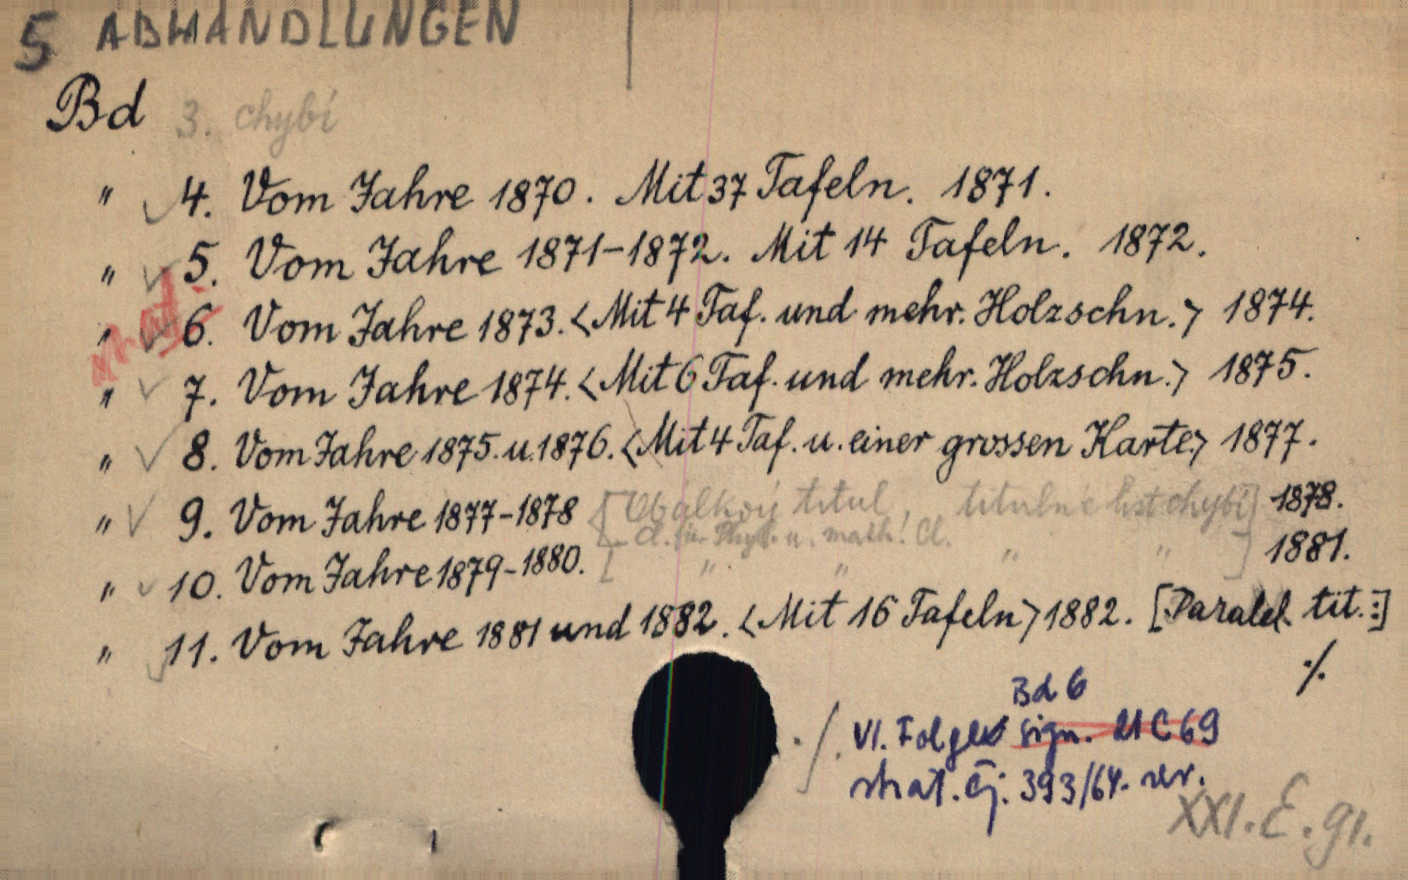 5 ABHANDLUNGEN
Bd 3. chybí
" 4. Vom Jahre 1870. Mit 37 Tafeln. 1871.
" 5. Vom Jahre 1871-1872. Mit 14 Tafeln. 1872.
" 6. Vom Jahre 1873. <Mit 4 Taf. und mehr. Holzschn.> 1874.
" 7. Vom Jahre 1874. <Mit 6 Taf. und mehr. Holzschn.> 1875.
" 8. Vom Jahre 1875. u. 1876. <Mit 4 Taf. u. einer grossen Karte> 1877.
" 9. Vom Jahre 1877-1878 [Obálkový titul, titulní list chybí] 1878.
Cl. für Phys. u. math. Cl.
" 10. Vom Jahre 1879-1880. [ " " " " ] 1881.
" 11. Vom Jahre 1881 und 1882. <Mit 16 Tafeln> 1882. [Paralel. tit.:]
./.
Bd 6
./. VI. Folge sign. 21 C 69
ztrat. čj. 393/64. rev.
XXI. E. 91.